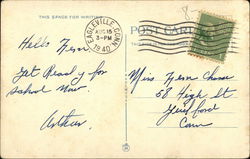 THIS SPACE FOR WRITING
POST CARD
EAGLEVILLE, CONN.
AUG 15
3-PM
1940
Hello Fern
Get Ready for
school Now.
Arthur
Miss Fern
58 High St
Guilford
Conn